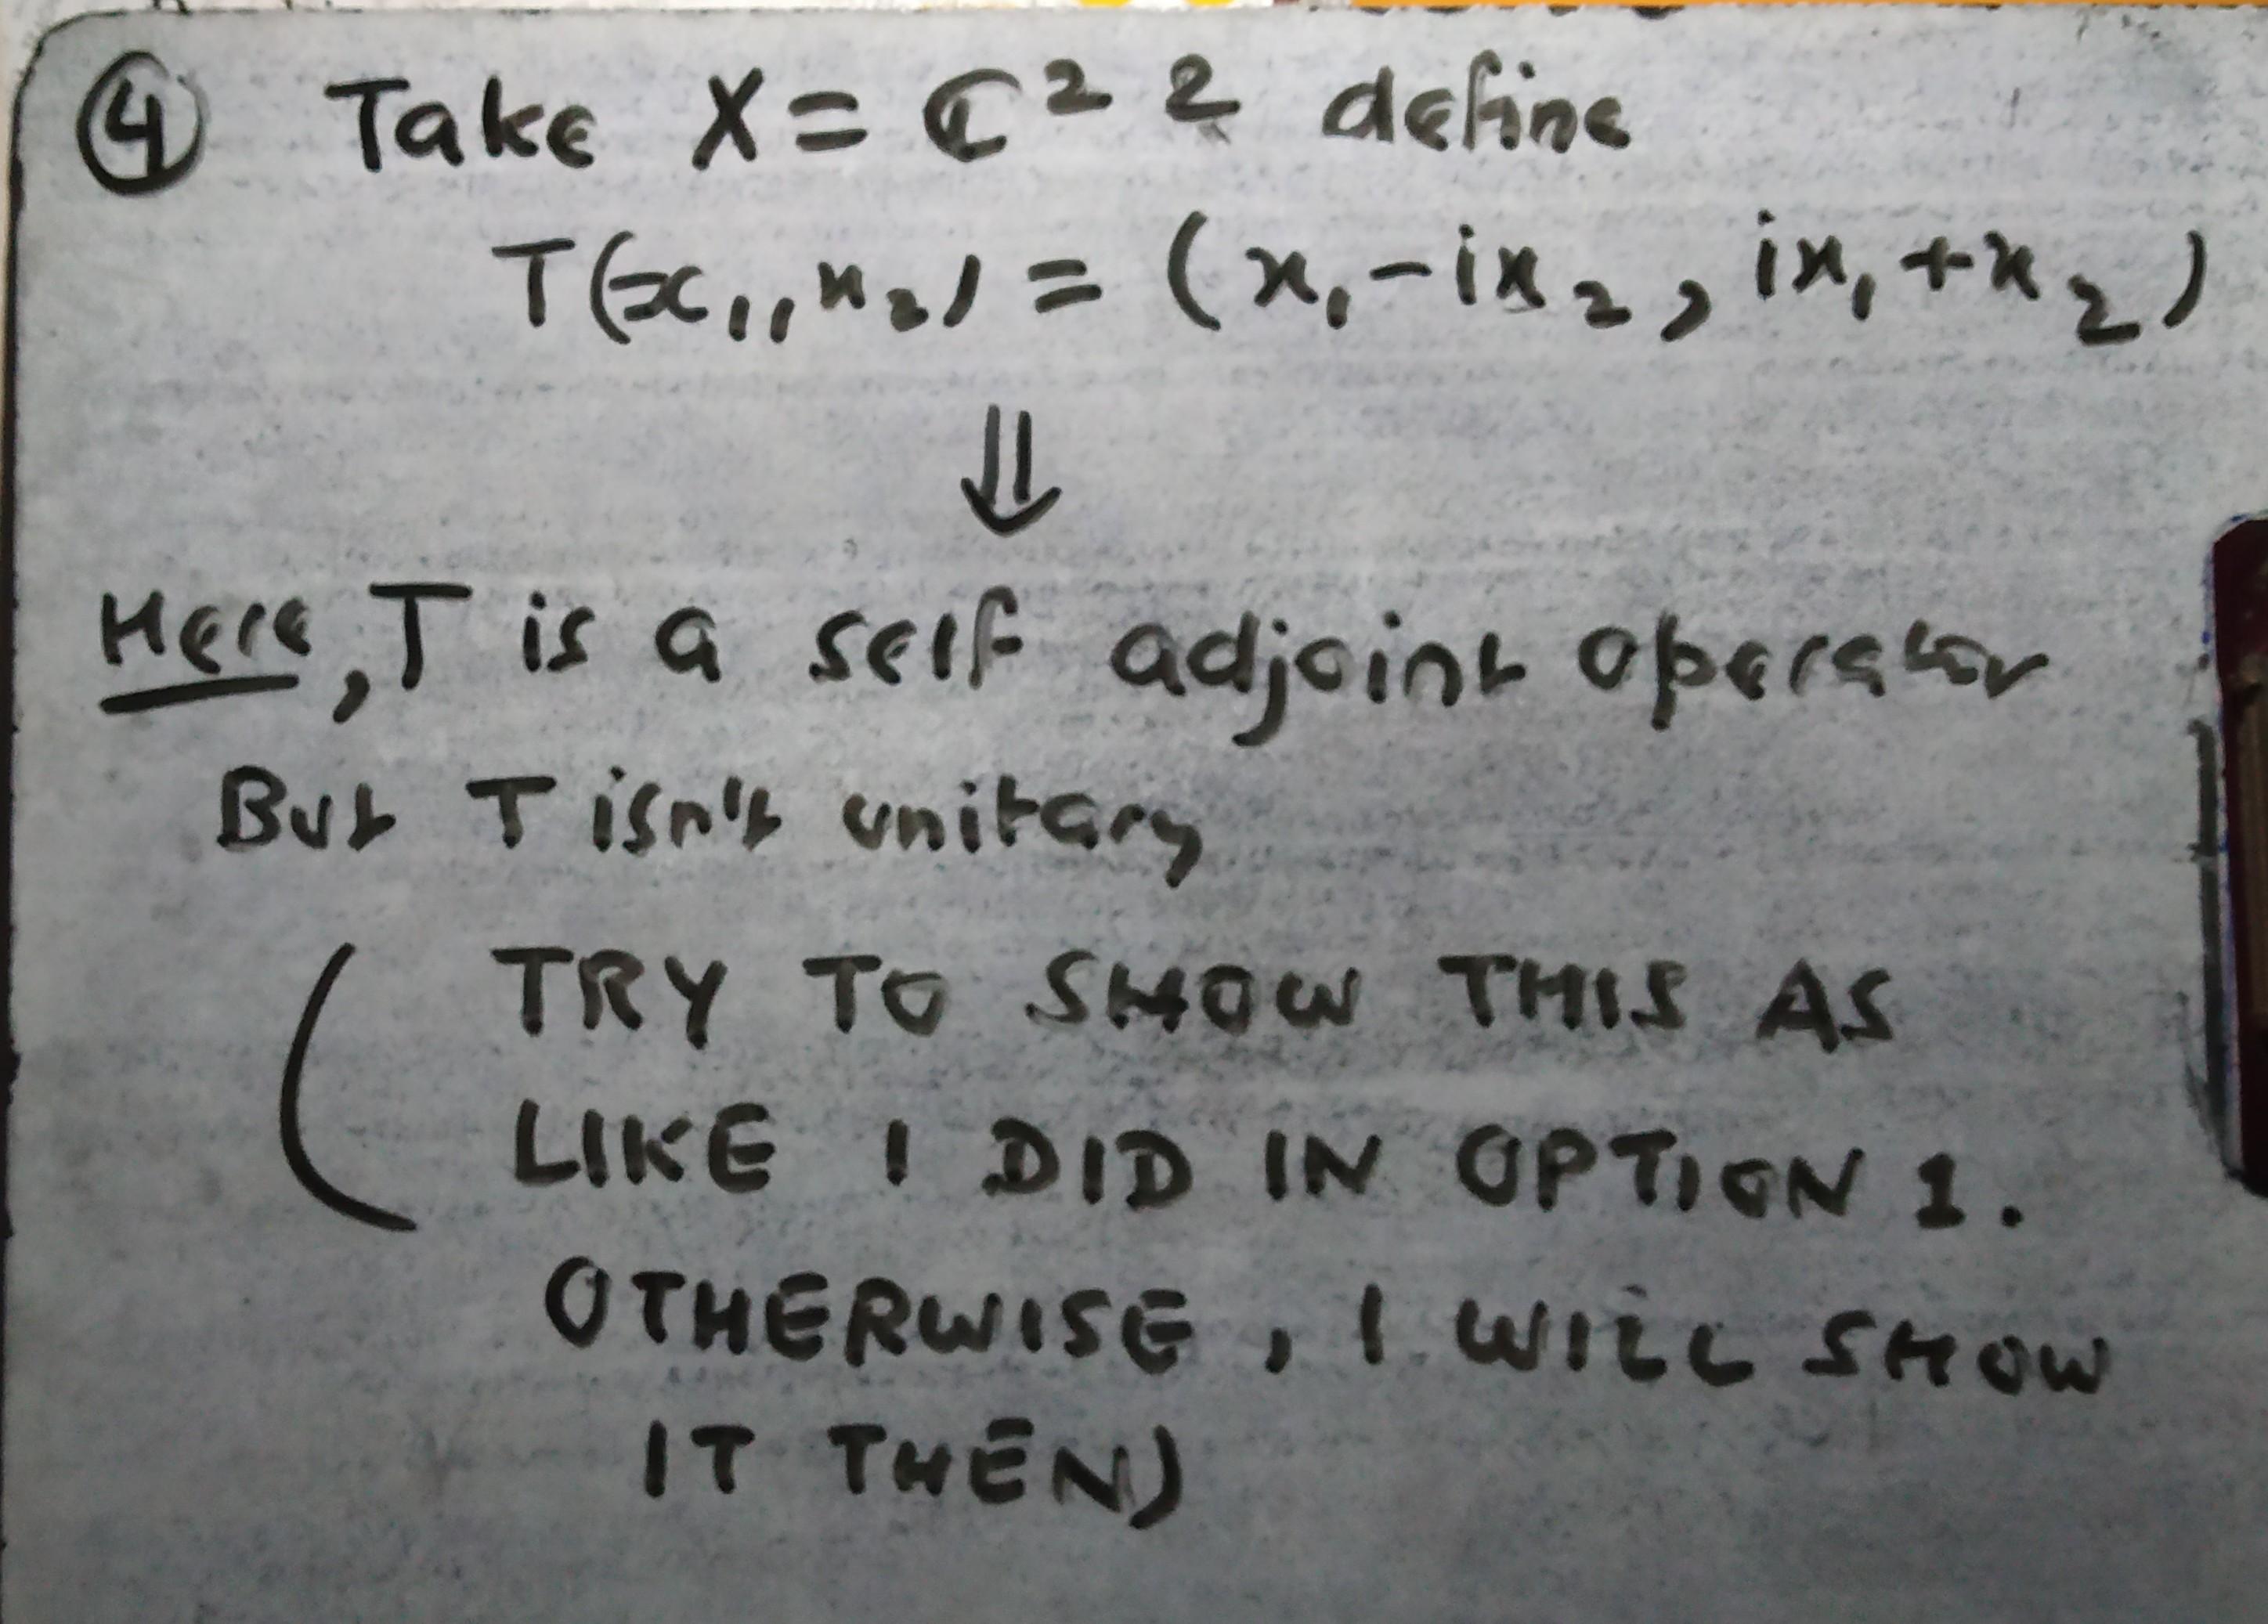 ④ Take X = ℂ² & define
T(x₁, x₂) = (x₁ - ix₂, ix₁ + x₂)
⇓
Here, T is a self adjoint operator
But T isn't unitary
( TRY TO SHOW THIS AS
LIKE I DID IN OPTION 1.
OTHERWISE, I WILL SHOW
IT THEN)